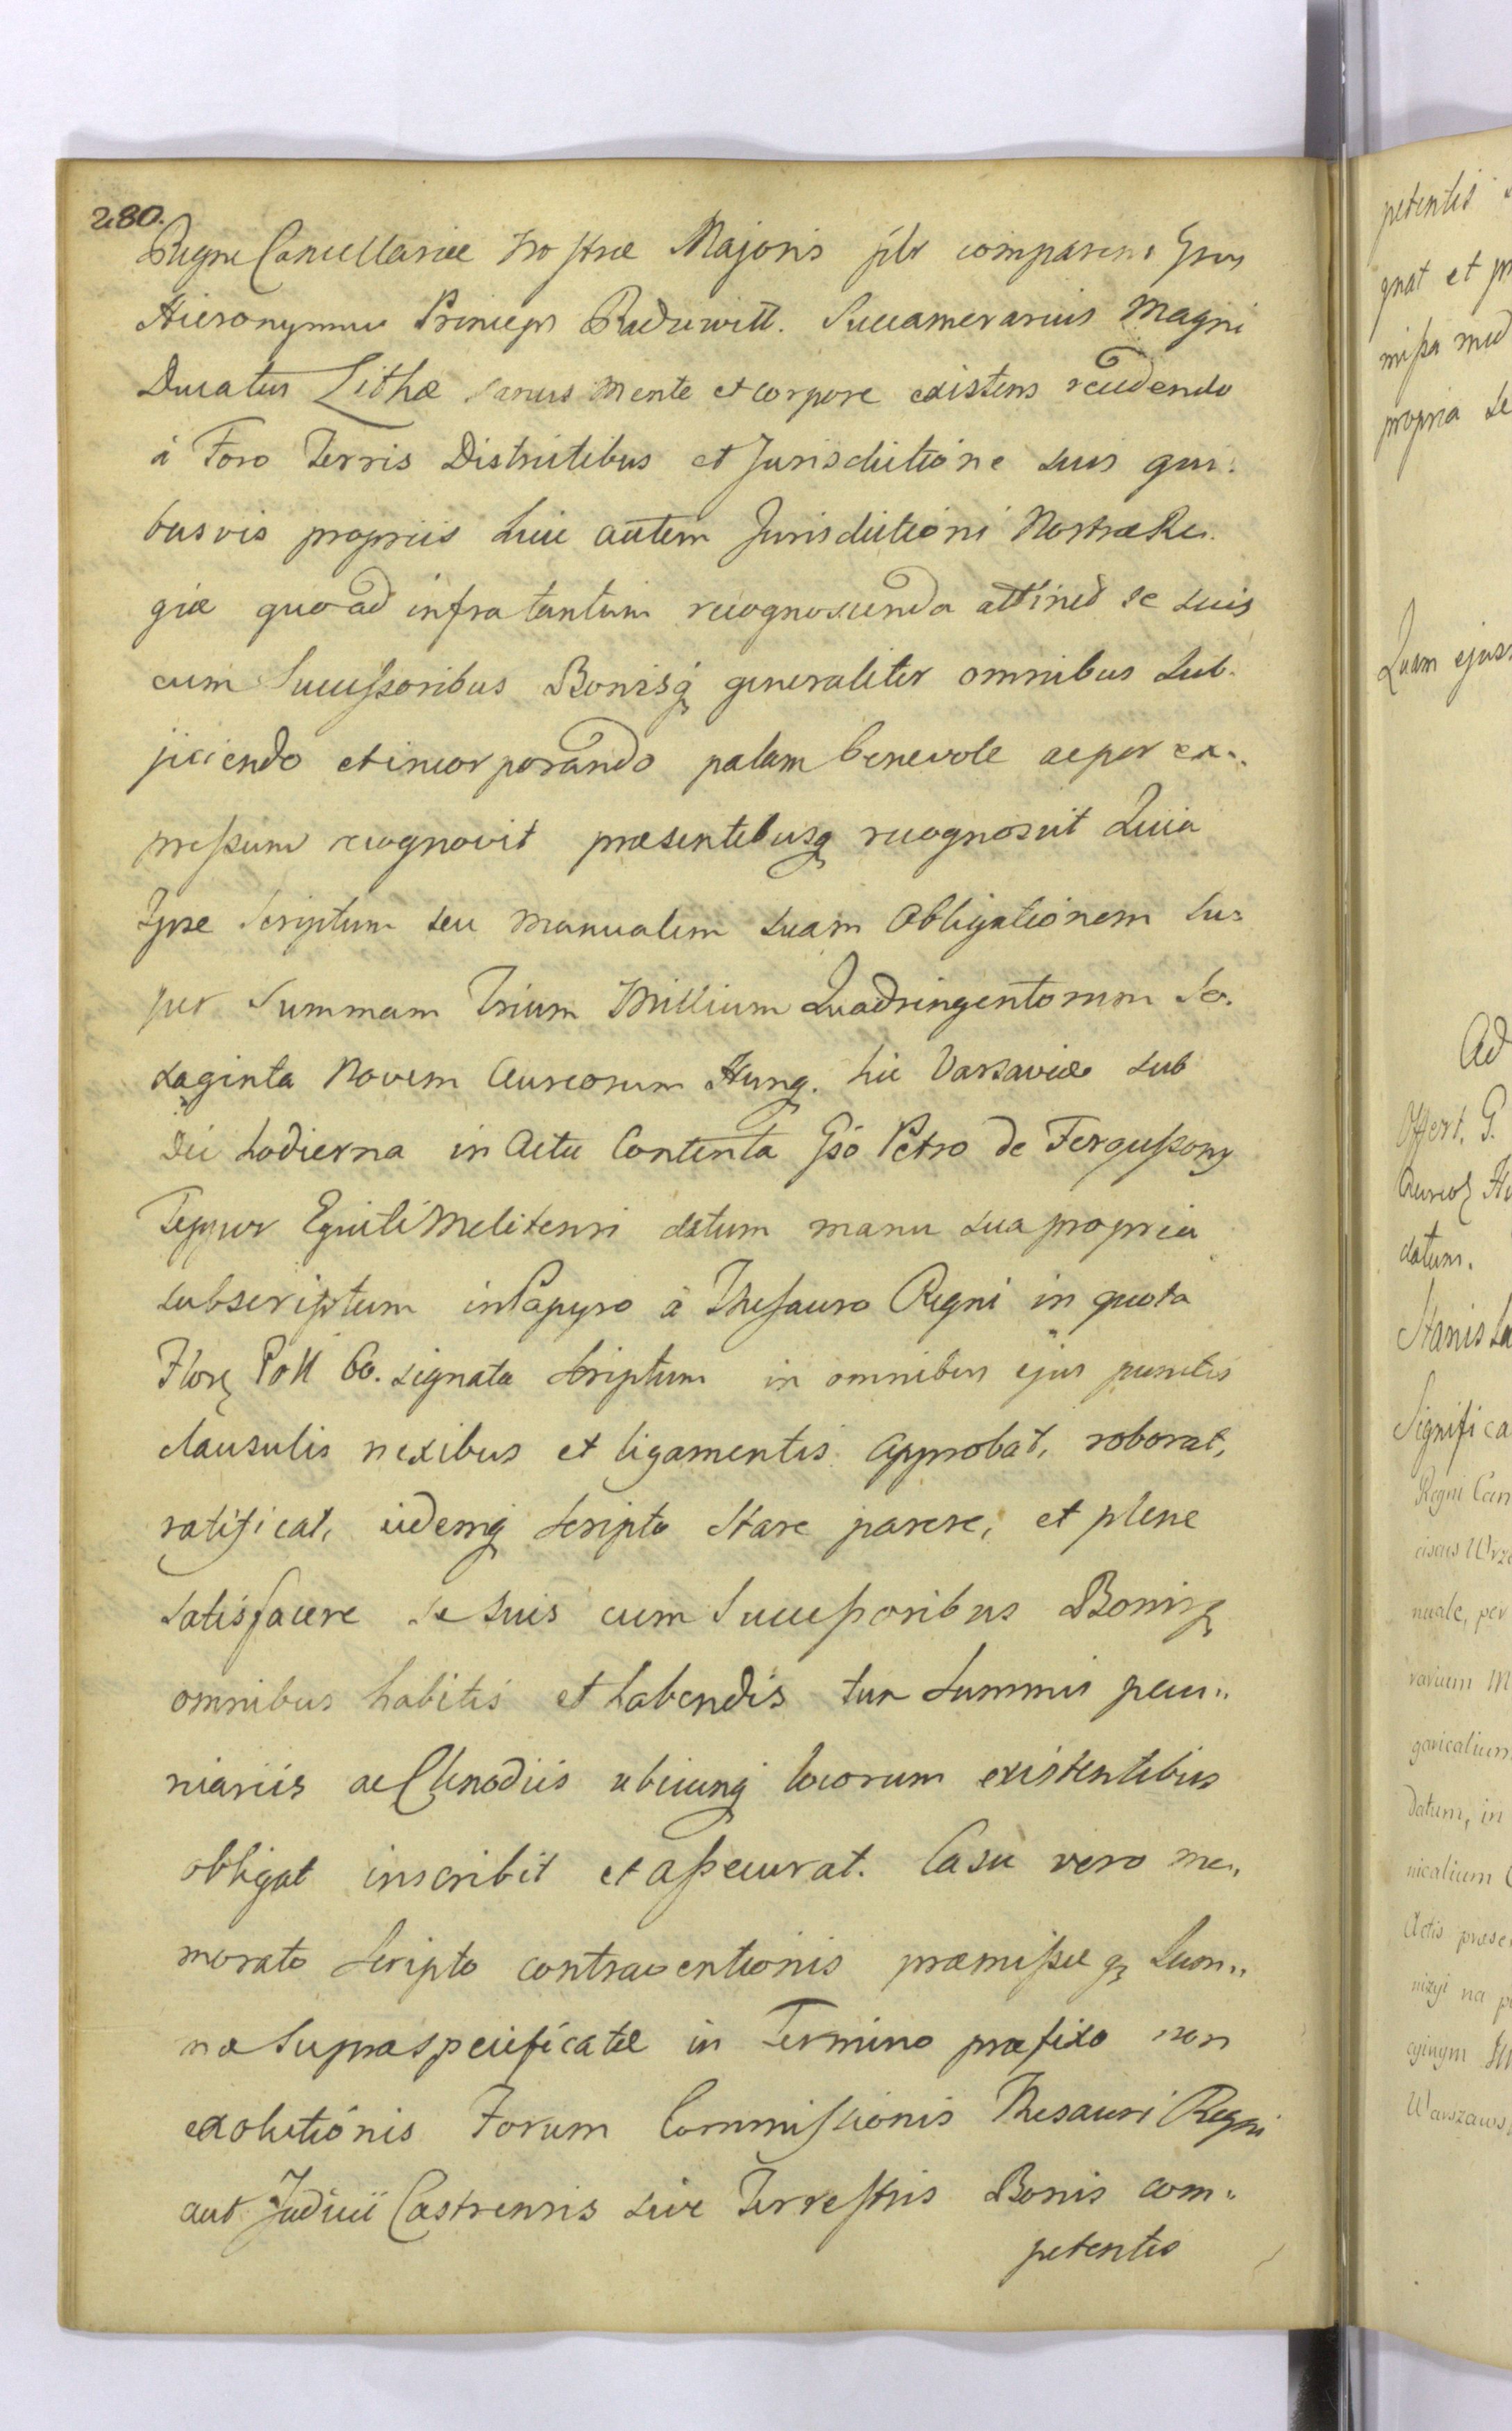 280.
Regni Cancellariæ Nostræ Majoris plr comparens Gsus
Hieronymus Princeps Radziwill. Succamerarius Magni
Ducatus Lithæ sanus mente et corpore existens recedendo
à Foro Terris Districtibus et Jurisdictione suis qui-
busvis propriis huic autem Jurisdictioni Nostræ Re-
giæ quoad infra tantum recognoscenda attinet se suis
cum Successoribus Bonisq generaliter omnibus sub-
jiciendo et incorporando palam benevole ac per ex-
pressum recognovit præsentibusq recognoscit Quia
Ipse Scriptum seu manualem suam Obligationem su-
per Summam Trium Millium Quadringentorum Se-
xaginta Novem Aureorum Hung. hic Varsaviæ sub
die hodierna in Actu Contenta Gso Petro de Fergussony
Tepper Equiti Melitensi datum manu sua propria
subscriptum in Papyro à Thesauro Regni in quota
Flor Poll 60. signata scriptum in omnibus ejus punctis
clausulis nexibus et ligamentis approbat, roborat,
ratificat, iidemq scripto stare parere, et plene
satisfacere se suis cum Successoribus Bonisq
omnibus habitis et habendis tun summis pecu-
niariis ac Clenodiis ubicunq locorum existentibus
obligat inscribit et assecurat. Casu vero me-
morato scripto contraventionis præmissæ q Sum-
mæ supraspecificatæ in Termino præfixo non
exolutionis Forum Commissionis Thesauri Regni
aut Judicii Castrensis sive Terrestris Bonis com-
petentis
petentis
gnat et
missa
propria
Quam ejus
Ad
Offert. G.
Aureor
datum.
Stanisla
Significa
Regni Can
ciscus
nuale, per
rarium M
garicalium
datum, in
nicalium
Actis præse
na
cyinym
Warszaws